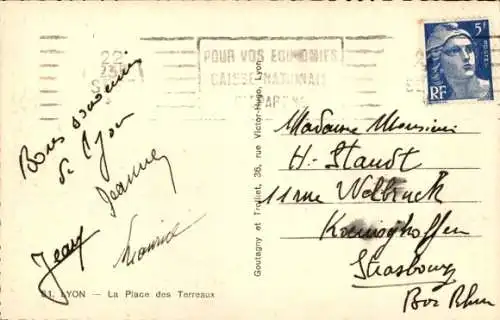 POUR VOS ECONOMIES
CAISSE NATIONALE
22
5F
POSTES
RF
Bons souvenirs
de Lyon
Jeanne
Jean
Maurice
Goutagny et Trolliet, 36, rue Victor-Hugo, Lyon
Madame Monsieur
H. Staudt
11 rue
Koenigshoffen
Strasbourg
Bas Rhin
LYON — La Place des Terreaux